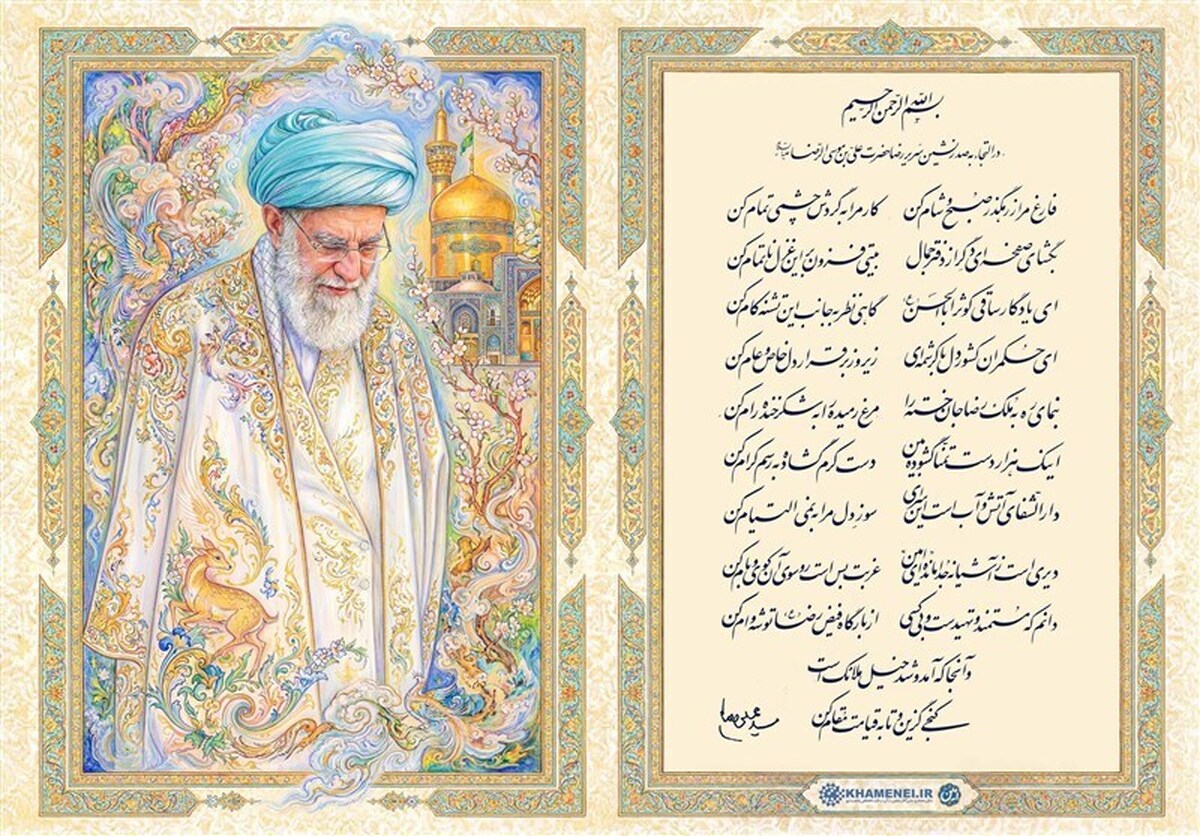 بسم الله الرحمن الرحیم
در التجاء به صدرنشین سریر رضا حضرت علی بن موسی الرضا
فارغ مرا ز رهگذر صبح و شام کن کار مرا به گردش چشمی تمام کن
بگشای صفحه‌ای دگر از دفتر جمال بیتی فزون بر این غزل ناتمام کن
ای یادگار ساقی کوثر اباالحسن گاهی نظر به جانب این تشنه کام کن
ای حکمران کشور دل با کرشمه‌ای زیر و زبر قرار دل خاص و عام کن
بنمای ره به ملک رضا جان خسته را مرغ رمیده را به شکرخنده رام کن
اینک هزار دست تمنا گشوده بین دست کرم گشاده به رسم کرام کن
دارالشفای آتش و آب است این سرای سوز دل مرا به نمی التیام کن
دیری است ز آشیانه جدا مانده‌ای امین غربت بس است رو سوی آن کوی و بام کن
دانم که مستمند و تهیدست و بی کسی از بارگاه فیض رضا توشه وام کن
وآنجا که آمد و شد خیل ملائک است
کنجی گزین و تا به قیامت مقام کن
KHAMENEI.IR